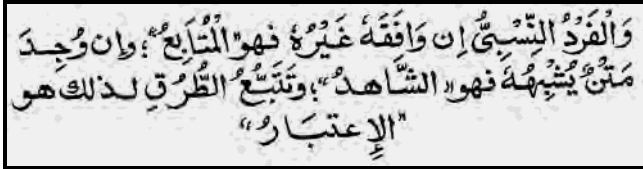 وَالْفَرْدُ النِّسْبِيُّ إِن وَافَقَهُ غَيْرُهُ فهو "الْمُتَابِعُ"؛ وإن وُجِدَ
مَتْنٌ يُشْبِهُهُ فهو "الشَّاهدُ"؛ وتَتَبُّعُ الطُّرُقِ لـذلك هو
"الإِعتبَارُ"